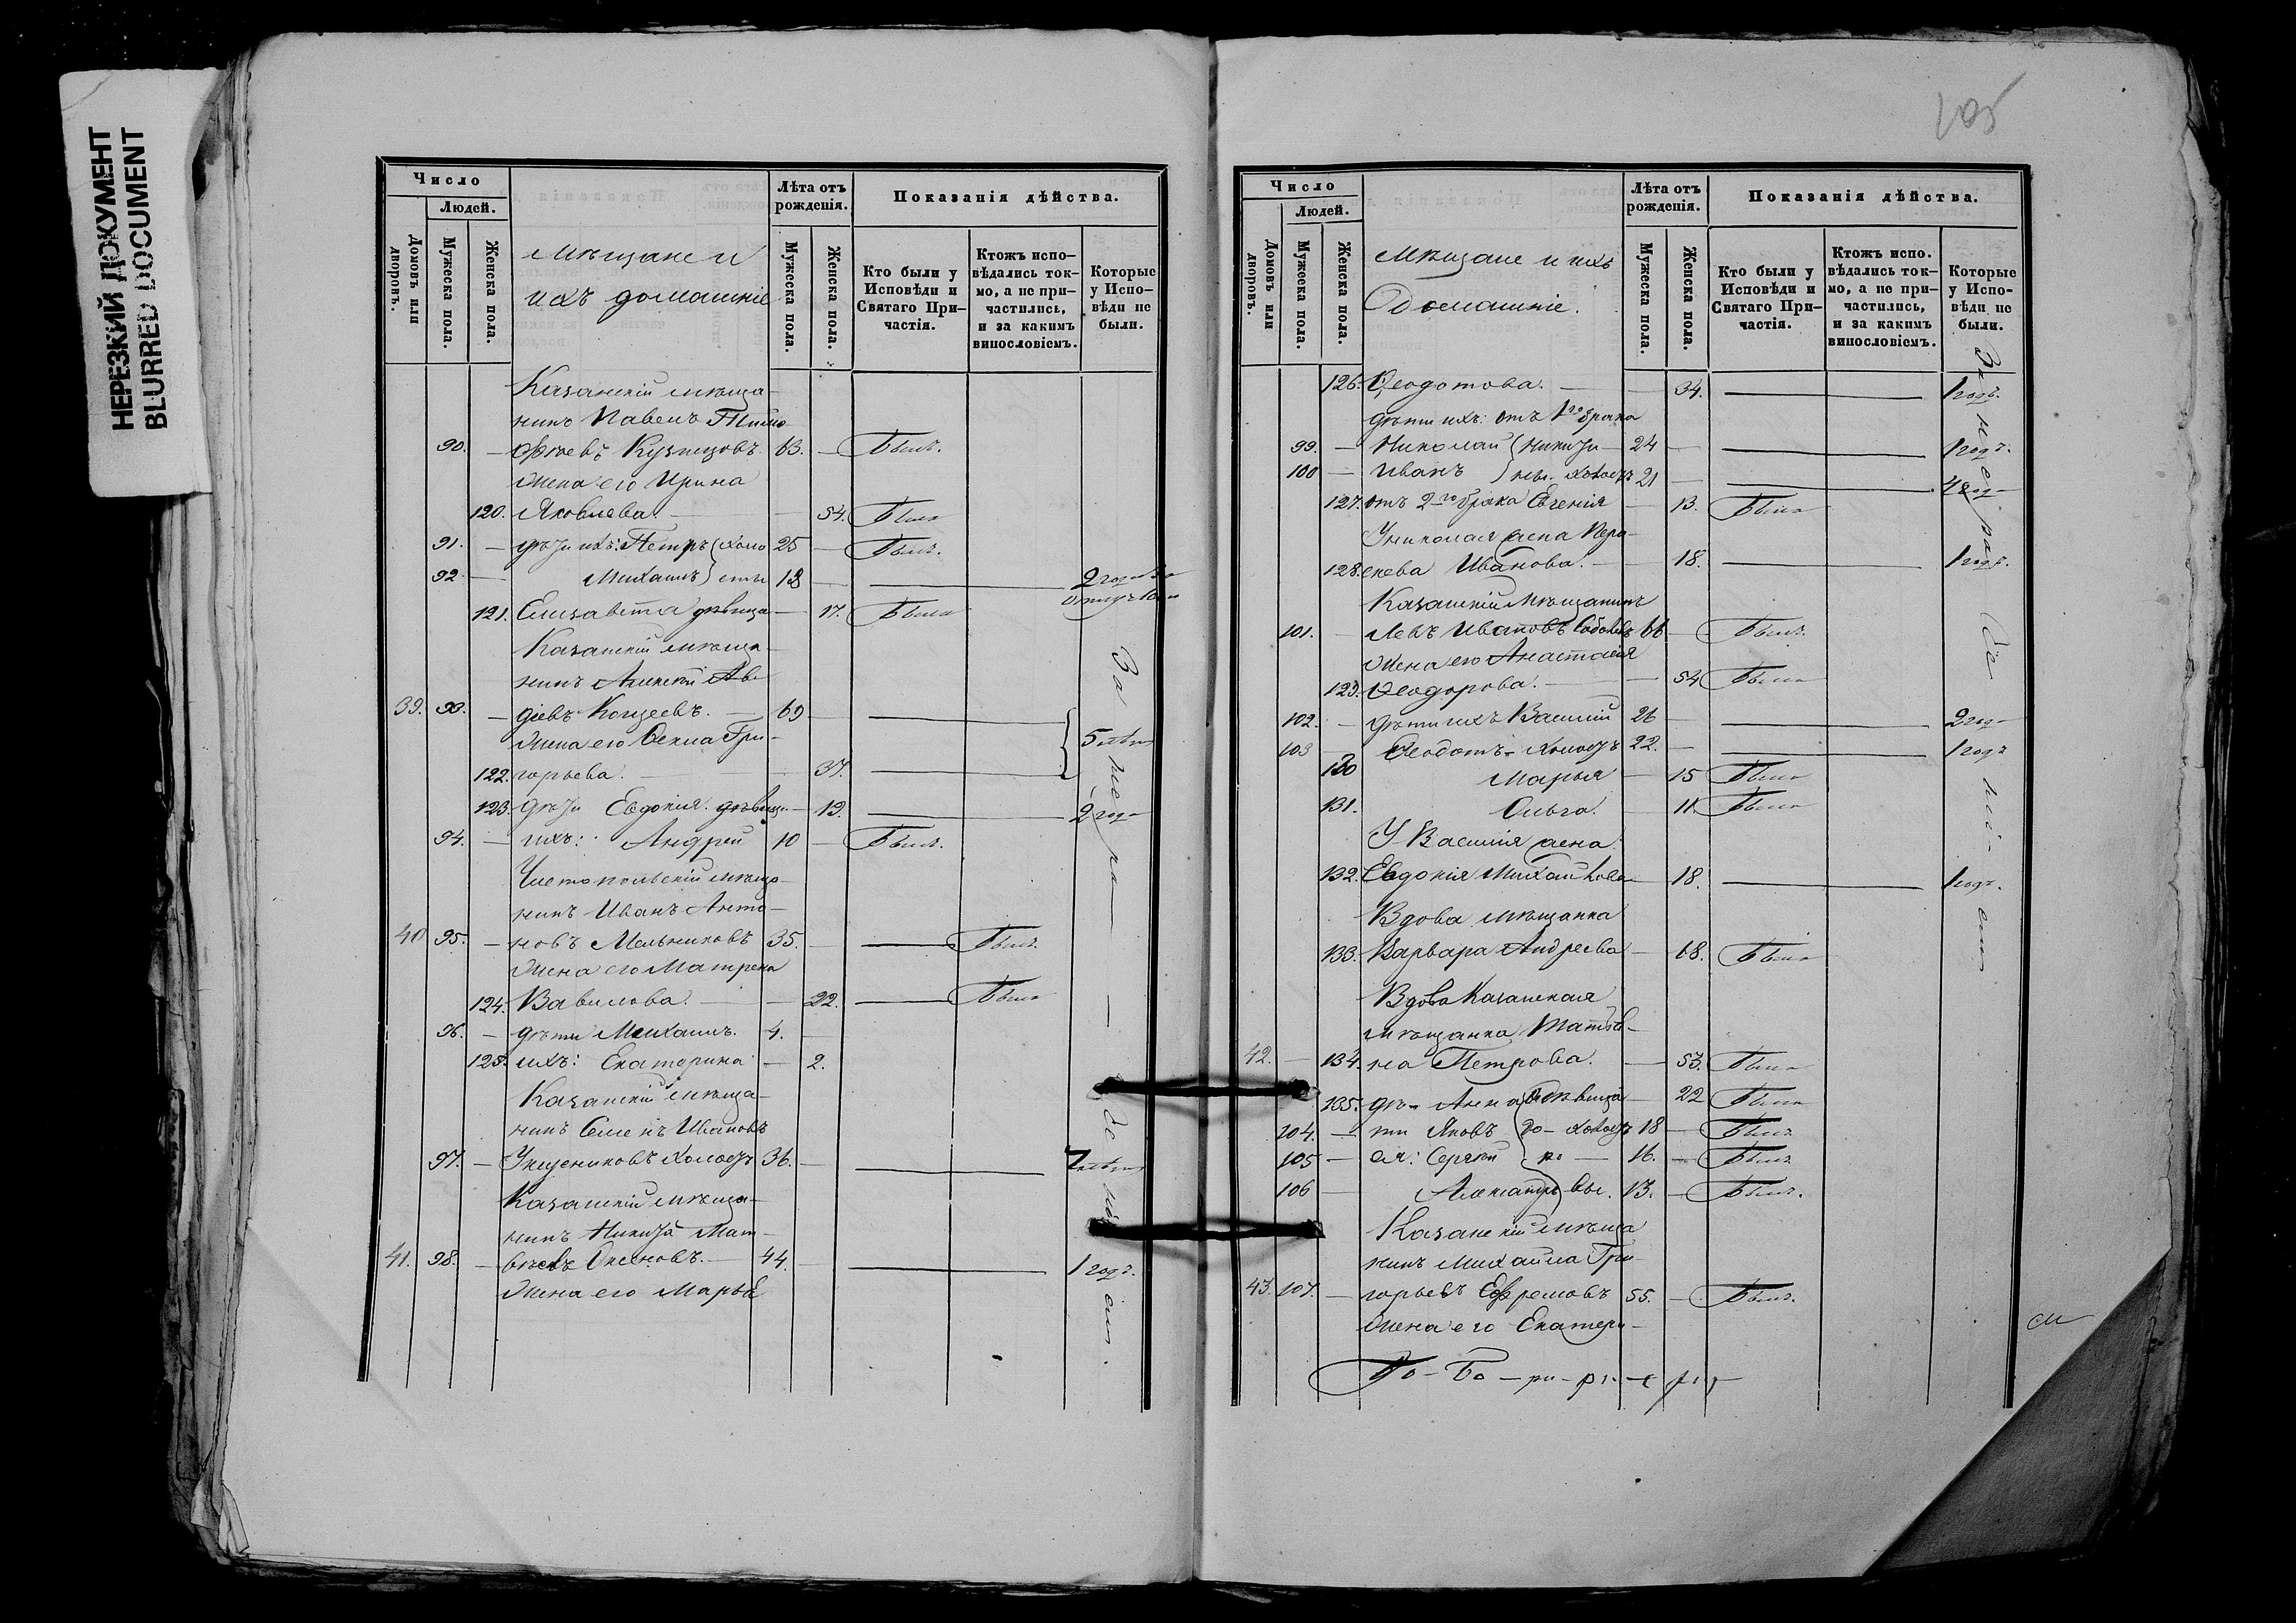 НЕРЕЗКИЙ ДОКУМЕНТ
BLURRED DOCUMENT
Число
Людей.
Домовъ или дворовъ.
Мужеска пола.
Женска пола.
Мѣщане и
ихъ домашніе
Лѣта отъ рожденія.
Мужеска пола.
Женска пола.
Показанія дѣйства.
Кто были у Исповѣди и Святаго Причастія.
Ктожъ исповѣдались токмо, а не причастились, и за какимъ винословіемъ.
Которые у Исповѣди не были.
Казанскій мѣща-
нинъ Павелъ Тимо
90. — ѳѣевъ Кузнецовъ 63. — Былъ.
Жена его Ирина
120. Яковлева. — 54. Была
91. — дѣти ихъ: Петръ холо 25 — Былъ.
92 — Михаилъ сты 18 — 2 года
121. Елизавета дѣвица — 17. Была
Казанскій мѣща-
нинъ Алексѣй Ав-
39. 93. — діевъ Кощеевъ. — 69 —
Жена его Ѳекла Гри-
5 лѣтъ
122. горьева. — 37.
123. дѣти Евдокія. дѣвица — 19. — 2 года
94. — ихъ: Андрей 10 — Былъ.
Чистопольскій мѣща-
нинъ Иванъ Анто-
40 95. — новъ Мельниковъ 35. — Былъ.
Жена его Матрена
124. Вавилова. — 22. — Была
96. — дѣти Михаилъ. 4. —
125. ихъ: Екатерина — 2.
Казанскій мѣща-
нинъ Семенъ Ивановъ
97. — холостъ 36. — 7 лѣтъ
Казанскій мѣща-
нинъ Никита Мат-
41. 98. — вѣевъ 44. — 1 годъ.
Жена его Марья
За нерадѣніемъ.
105
Число
Людей.
Домовъ или дворовъ.
Мужеска пола.
Женска пола.
Мѣщане и ихъ
Домашніе.
Лѣта отъ рожденія.
Мужеска пола.
Женска пола.
Показанія дѣйства.
Кто были у Исповѣди и Святаго Причастія.
Ктожъ исповѣдались токмо, а не причастились, и за какимъ винословіемъ.
Которые у Исповѣди не были.
126. Ѳеодотова. — 34. — 1 годъ.
дѣти ихъ: отъ 1го брака
99. — Николай 24 — 1 годъ.
100 — Иванъ холостъ 21 —
127. отъ 2го брака Евгенія — 13. Была
У Николая жена Пара-
128. скева Иванова. — 18. — 1 годъ.
Казанскій Мѣщанинъ
101. — Левъ Ивановъ Соболевъ 66 — Былъ.
Жена его Анастасія
129. Ѳеодорова. — 54 Была
102. — дѣти ихъ Василій 26 — 2 год
103 — Ѳеодотъ — холостъ 22. — 1 годъ
130 Марья — 15 Была
131. Ольга. — 11. Была
У Василія жена
132. Евдокія Михайлова — 18. — 1 годъ.
Вдова мѣщанка
133. Варвара Андреева — 68. Была
Вдова Казанская
мѣщанка Татья-
42. — 134. на Петрова. — 53. Была
135. дѣ- Анна дѣвица — 22 Была
104. — ти Яковъ холостъ 18 — Былъ
105 — ея: Сергѣй — 16. — Былъ
106 — Александръ 13. — Былъ.
Казанскій мѣща
нинъ Михаила Гри-
43. 107. — горьевъ Ефремовъ 55. — Былъ.
Жена его Екатери-
За нерадѣніемъ